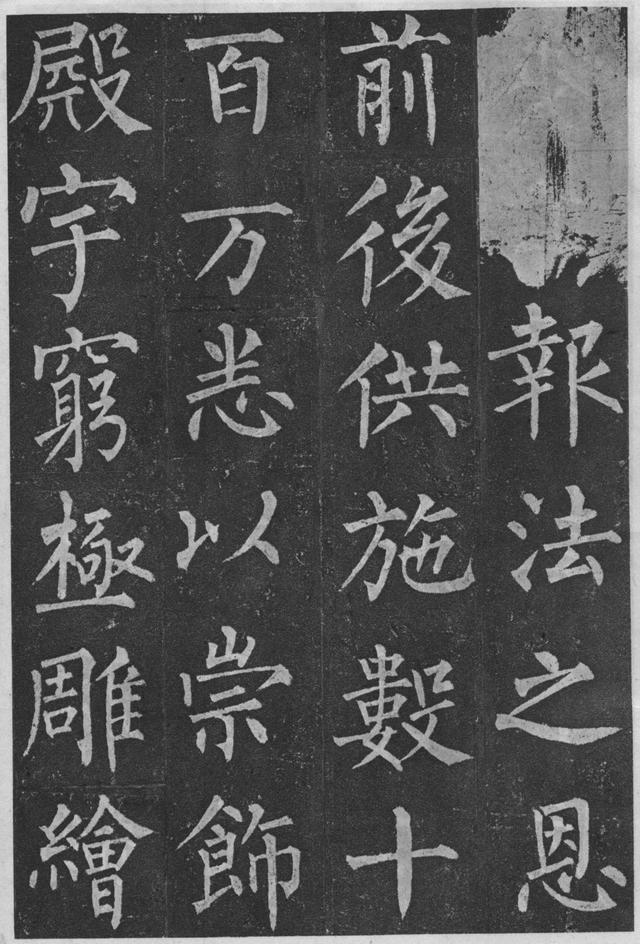 報法之恩
前後供施數十
百万悉以崇飾
殿宇窮極雕繪